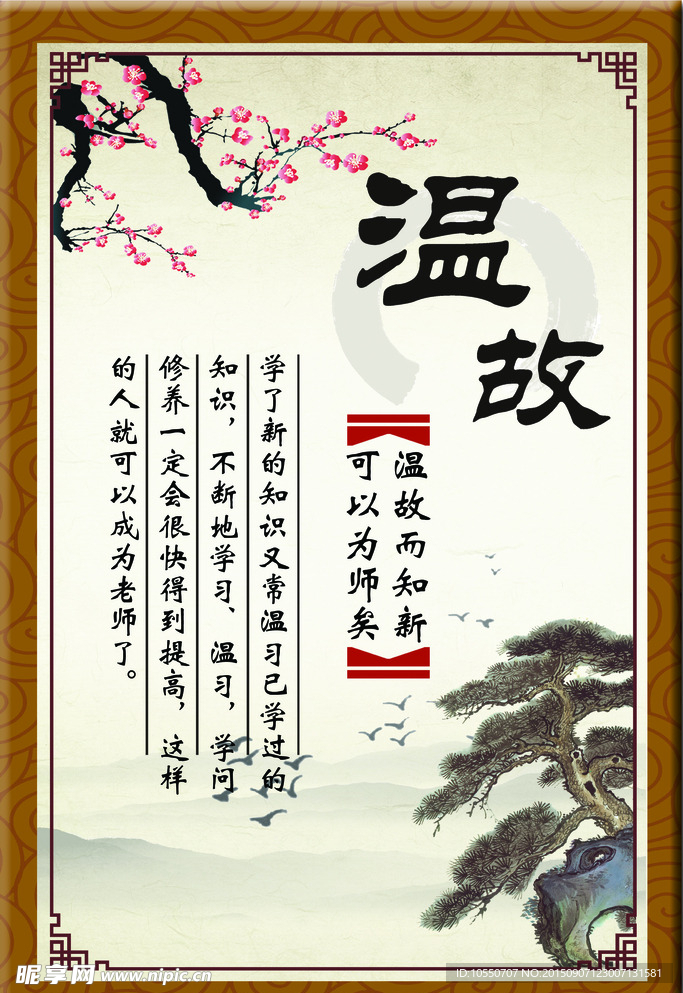 温故
温故而知新
可以为师矣
学了新的知识又常温习已学过的
知识，不断地学习、温习，学问
修养一定会很快得到提高，这样
的人就可以成为老师了。
昵享网 www.nipic.cn
ID:10550707 NO:20150907123007131581